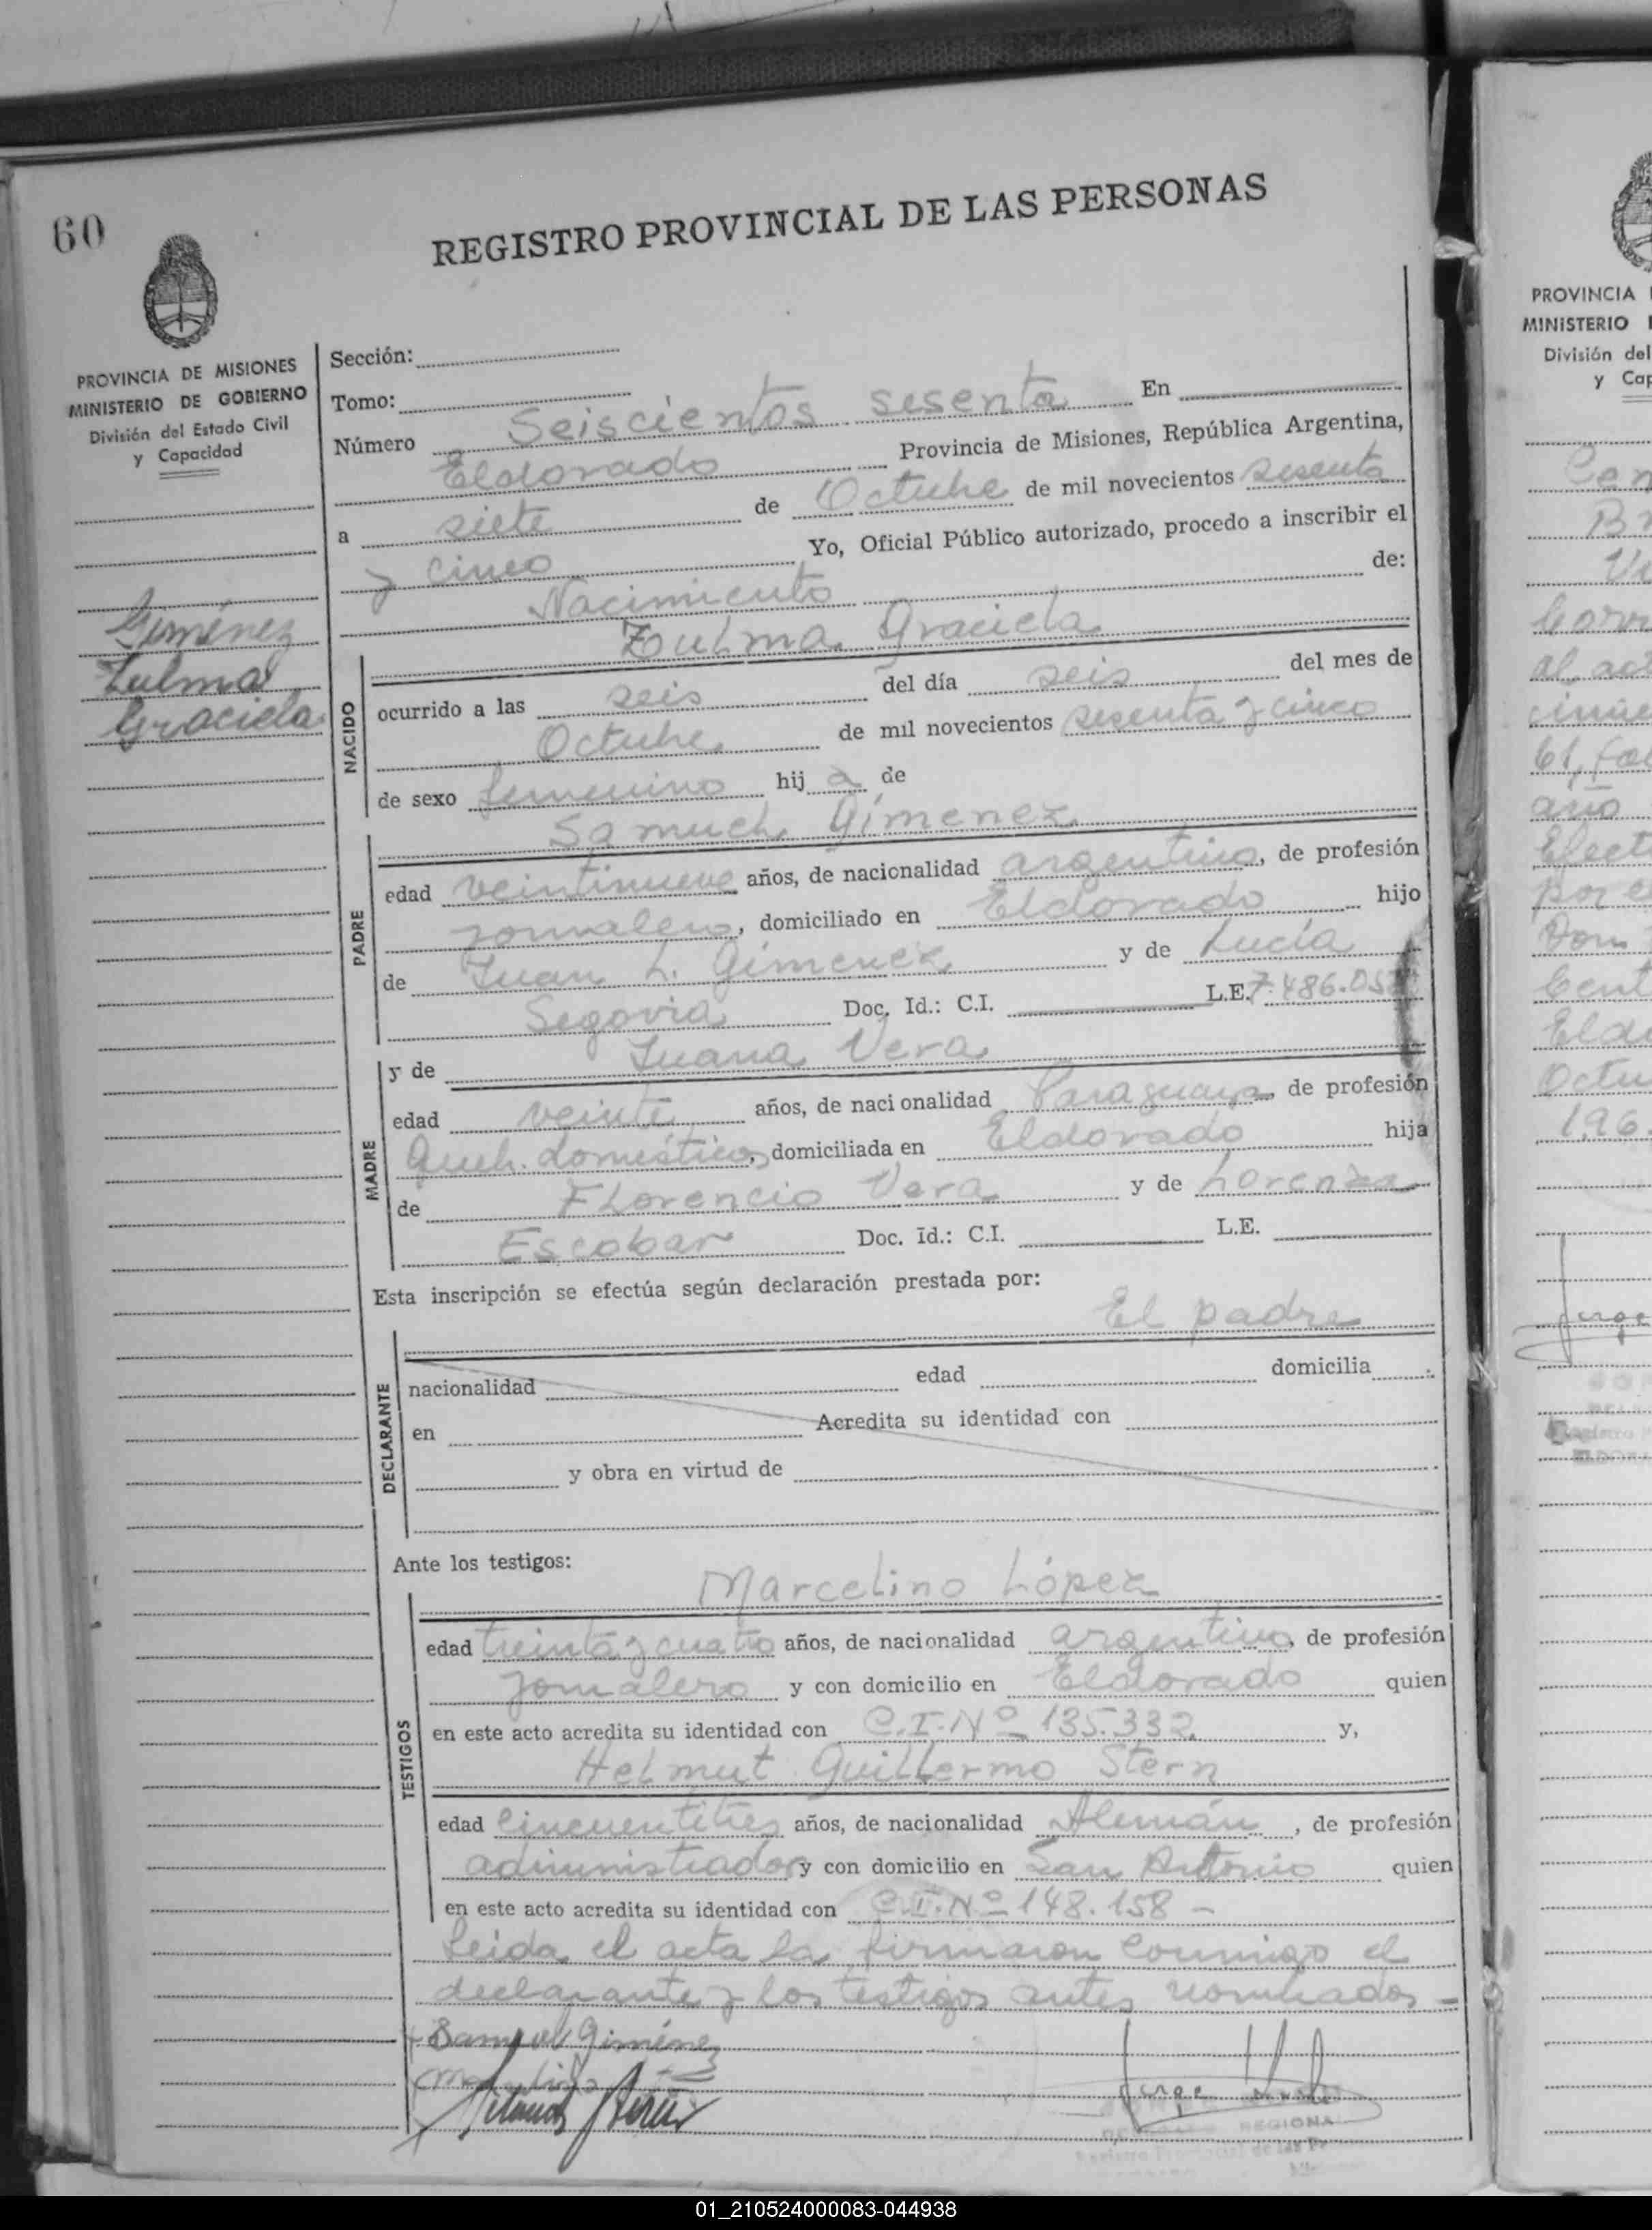 60
REGISTRO PROVINCIAL DE LAS PERSONAS
PROVINCIA DE MISIONES
MINISTERIO DE GOBIERNO
División del Estado Civil
y Capacidad
Giménez
Zulma
Graciela
Sección:
Tomo:
Número Seiscientos sesenta En
Eldorado Provincia de Misiones, República Argentina,
a siete de Octubre de mil novecientos sesenta
y cinco Yo, Oficial Público autorizado, procedo a inscribir el
Nacimiento de:
Zulma Graciela
NACIDO
ocurrido a las seis del día seis del mes de
Octubre de mil novecientos sesenta y cinco
de sexo femenino hij a de
Samuel Gimenez
PADRE
edad veintinueve años, de nacionalidad argentino, de profesión
jornalero, domiciliado en Eldorado hijo
de Juan L. Gimenez y de Lucía
Segovia Doc. Id.: C.I. L.E. 7.486.05
y de Juana Vera
MADRE
edad veinte años, de nacionalidad Paraguaya, de profesión
Queh. domésticos, domiciliada en Eldorado hija
de Florencio Vera y de Lorenza
Escobar Doc. Id.: C.I. L.E.
Esta inscripción se efectúa según declaración prestada por:
El padre
DECLARANTE
nacionalidad edad domicilia
en Acredita su identidad con
y obra en virtud de
Ante los testigos:
Marcelino López
TESTIGOS
edad treinta y cuatro años, de nacionalidad argentino, de profesión
jornalero y con domicilio en Eldorado quien
en este acto acredita su identidad con C.I. Nº 135.332. y,
Helmut Guillermo Stern
edad cincuentitres años, de nacionalidad Alemán, de profesión
administrador y con domicilio en San Antonio quien
en este acto acredita su identidad con C.I. Nº 148.158 -
Leida el acta la firmaron conmigo el
declarante y los testigos antes nombrados -
Samuel Giménez
Jorge
REGIONA
PROVINCIA
MINISTERIO
División del
y Cap
61, fo
año
Octu
196
01_210524000083-044938